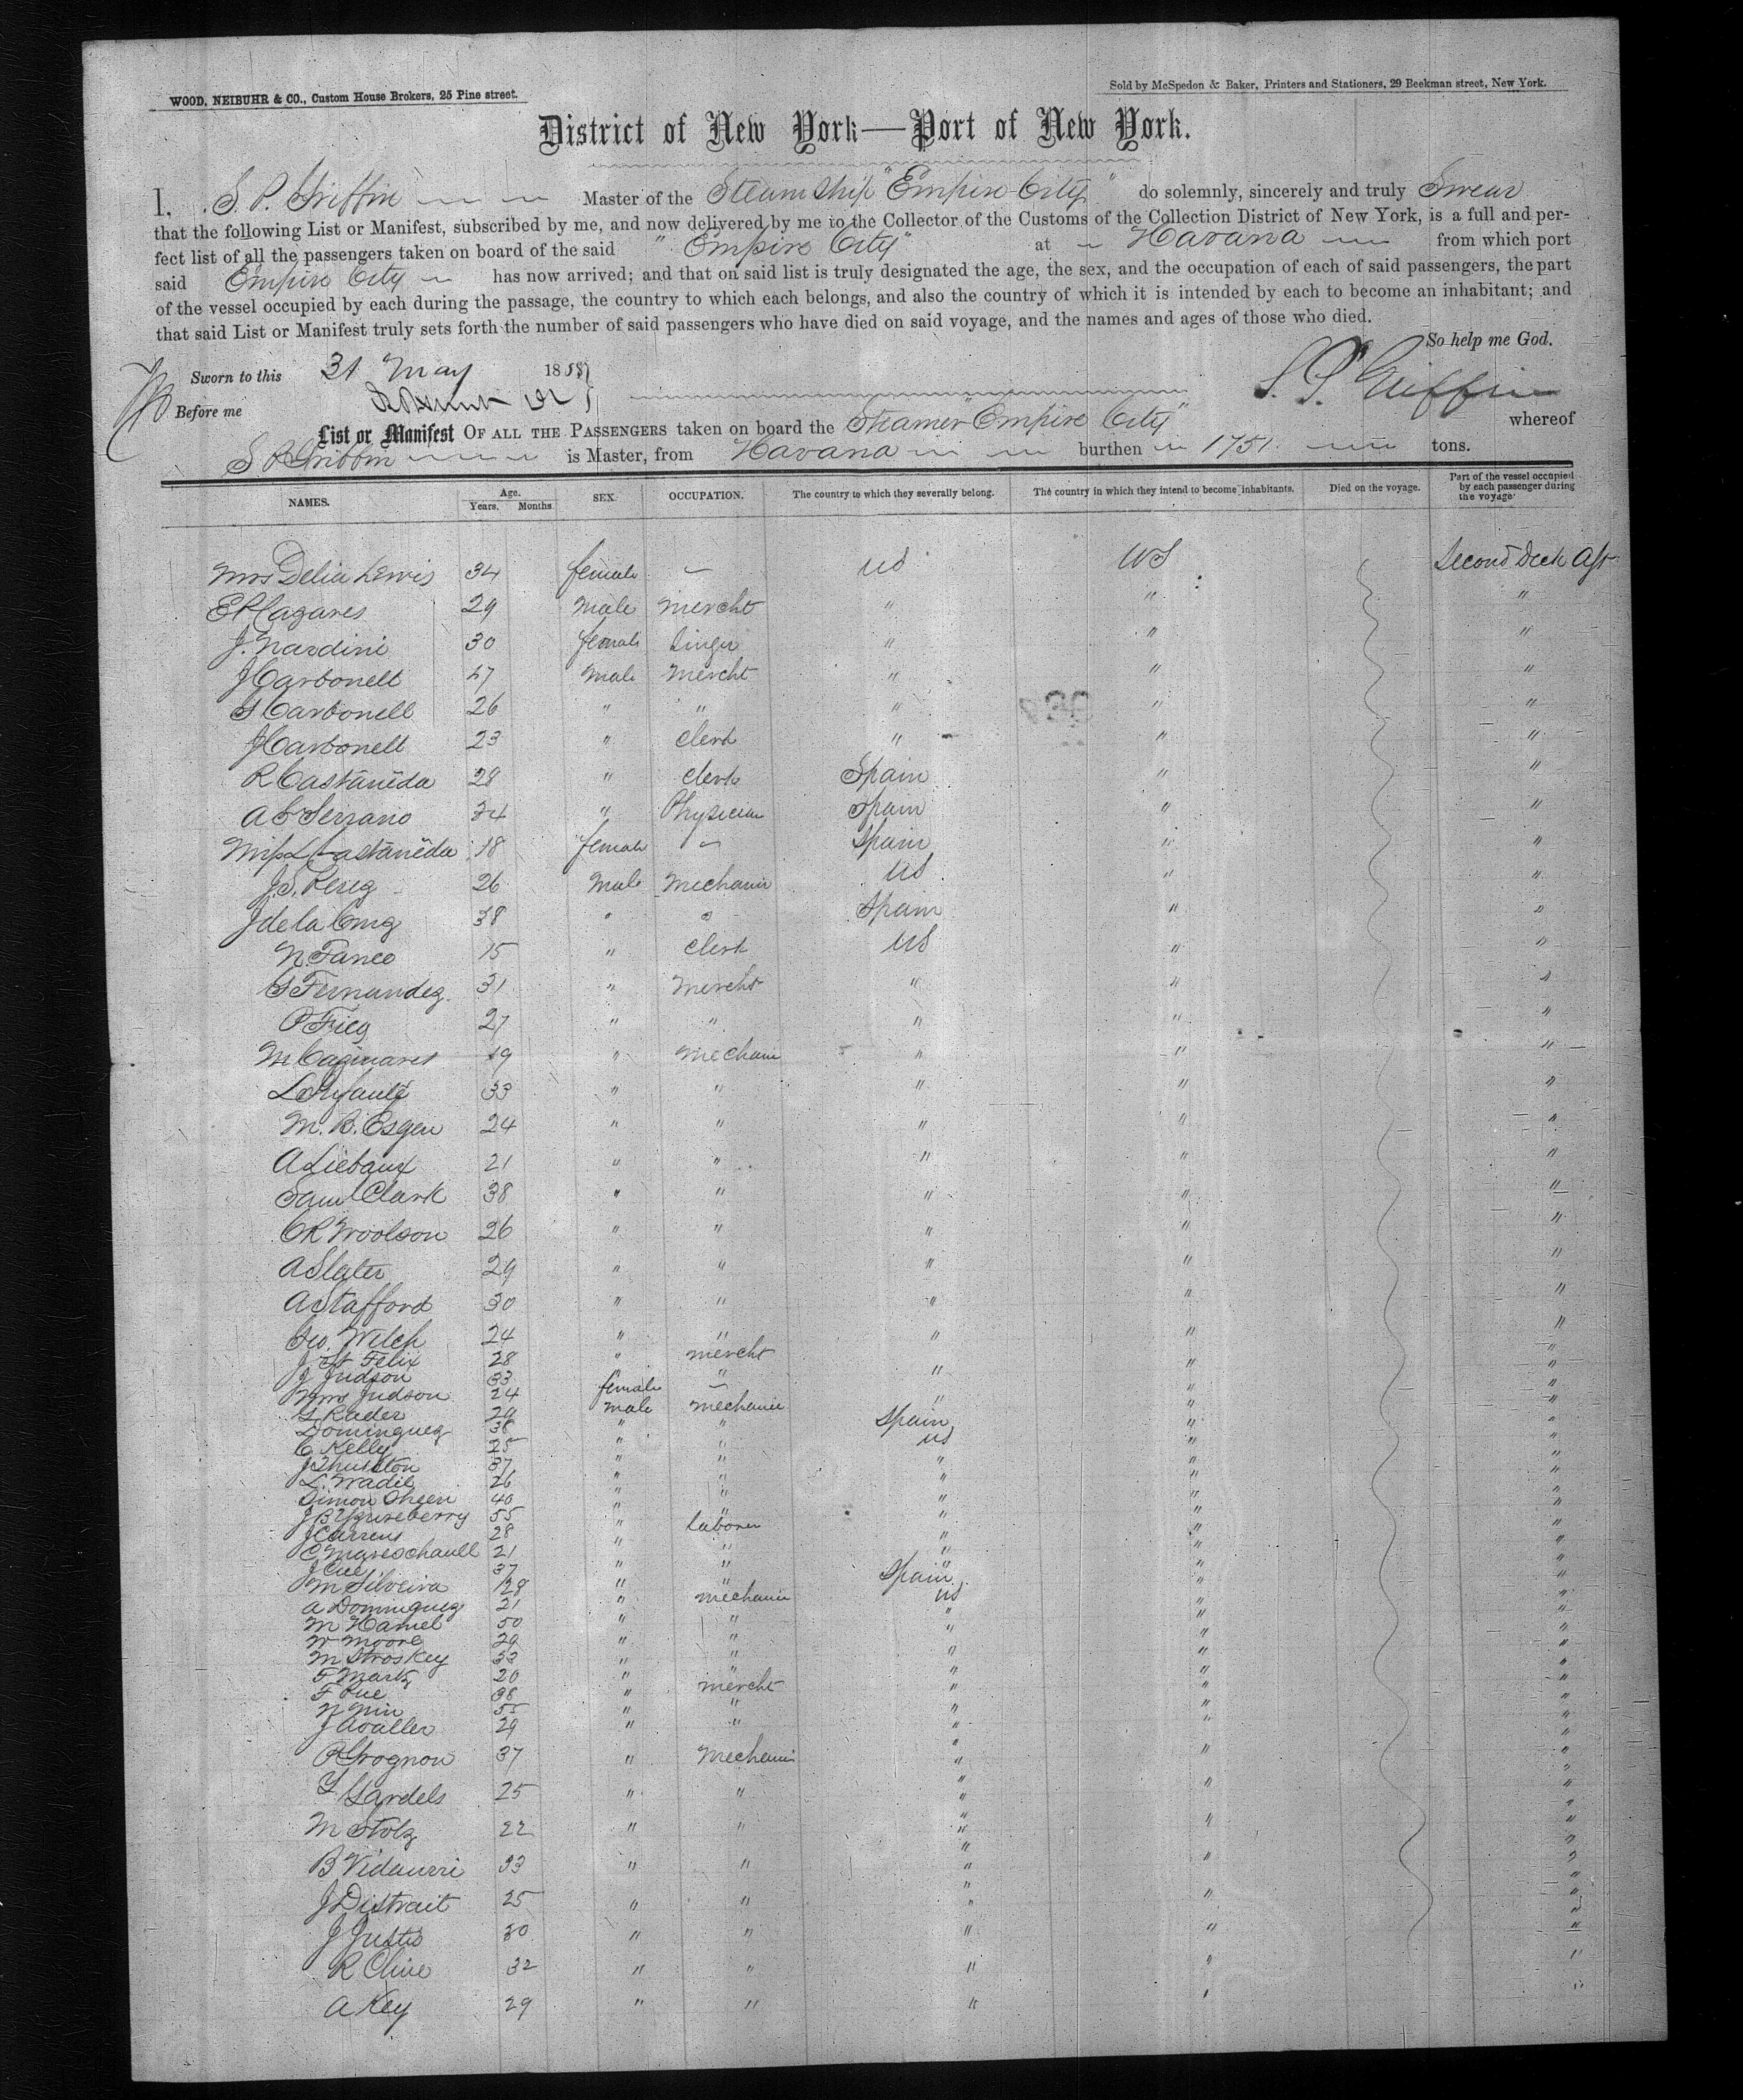 WOOD, NEIBUHR & CO., Custom House Brokers, 25 Pine street.
Sold by McSpedon & Baker, Printers and Stationers, 29 Beekman street, New York.
District of New York—Port of New York.
I, S. P. Griffin Master of the Steam Ship "Empire City" do solemnly, sincerely and truly Swear
that the following List or Manifest, subscribed by me, and now delivered by me to the Collector of the Customs of the Collection District of New York, is a full and per-
fect list of all the passengers taken on board of the said "Empire City" at Havana from which port
said Empire City has now arrived; and that on said list is truly designated the age, the sex, and the occupation of each of said passengers, the part
of the vessel occupied by each during the passage, the country to which each belongs, and also the country of which it is intended by each to become an inhabitant; and
that said List or Manifest truly sets forth the number of said passengers who have died on said voyage, and the names and ages of those who died.
So help me God.
Sworn to this 31 May 1858
S. P. Griffin
Before me
List or Manifest OF ALL THE PASSENGERS taken on board the Steamer "Empire City" whereof
S P Griffin is Master, from Havana burthen 1751 tons.
NAMES. Age. Years. Months SEX. OCCUPATION. The country to which they severally belong. The country in which they intend to become inhabitants. Died on the voyage. Part of the vessel occupied by each passenger during the voyage
Mrs Delia Lewis 34 female — US US Second Deck Aft
E P Cazares 29 male mercht " " "
J. Nardini 30 female Singer " " "
J Carbonell 47 male mercht " " "
S Carbonell 26 " " " " "
J Carbonell 23 " Clerk " " "
R Castañeda 28 " Clerk Spain " "
A C Serrano 34 " Physician Spain " "
Miss L Castañeda 18 female — Spain " "
J. S. Perez 26 Male Mechanic US " "
J de la Cruz 38 " " Spain " "
N. Fanco 15 " Clerk US " "
S Fernandez 31 " Mercht " " "
P Frieg 27 " " " " "
M 19 " Mechanic " " "
33 " " " " "
M. B. Esgen 24 " " " " "
A Liebaux 21 " " " " "
Saml Clark 38 " " " " "
C R Woolson 26 " " " " "
A Slater 29 " " " " "
A Stafford 30 " " " " "
Geo. Welch 24 " " " " "
J St Felix 28 " mercht " "
J Judson 33 " " " " "
Mrs Judson 24 female — " "
G Rader 29 male mechanic " " "
Dominguez 38 " " Spain " "
C Kelly 25 " " US " "
J 37 " " " " "
L. Wadie 26 " " " "
Simon Ohgen 40 " " " " "
J B 55 " " " " "
J Carrens 28 " laborer " " "
C Mareschaull 21 " " " " "
J Cue 37 " " " " "
M Silveira 28 " " Spain " "
A Dominguez 21 " mechanic US " "
M Hamel 50 " " " " "
W Moore 29 " " " " "
M Stroskey 33 " " " " "
F Martz 20 " " " " "
F Pue 38 " mercht " " "
N Nin 55 " " " " "
J Avaller 29 " " " " "
P Grognon 37 " Mechanic " " "
Y Lardels 25 " " " " "
M Stolz 22 " " " " "
B Vidaurri 33 " " " " "
J Distrait 25 " " " " "
J Justo 30 " " " " "
R Cline 32 " " " " "
A Key 29 " " " " "